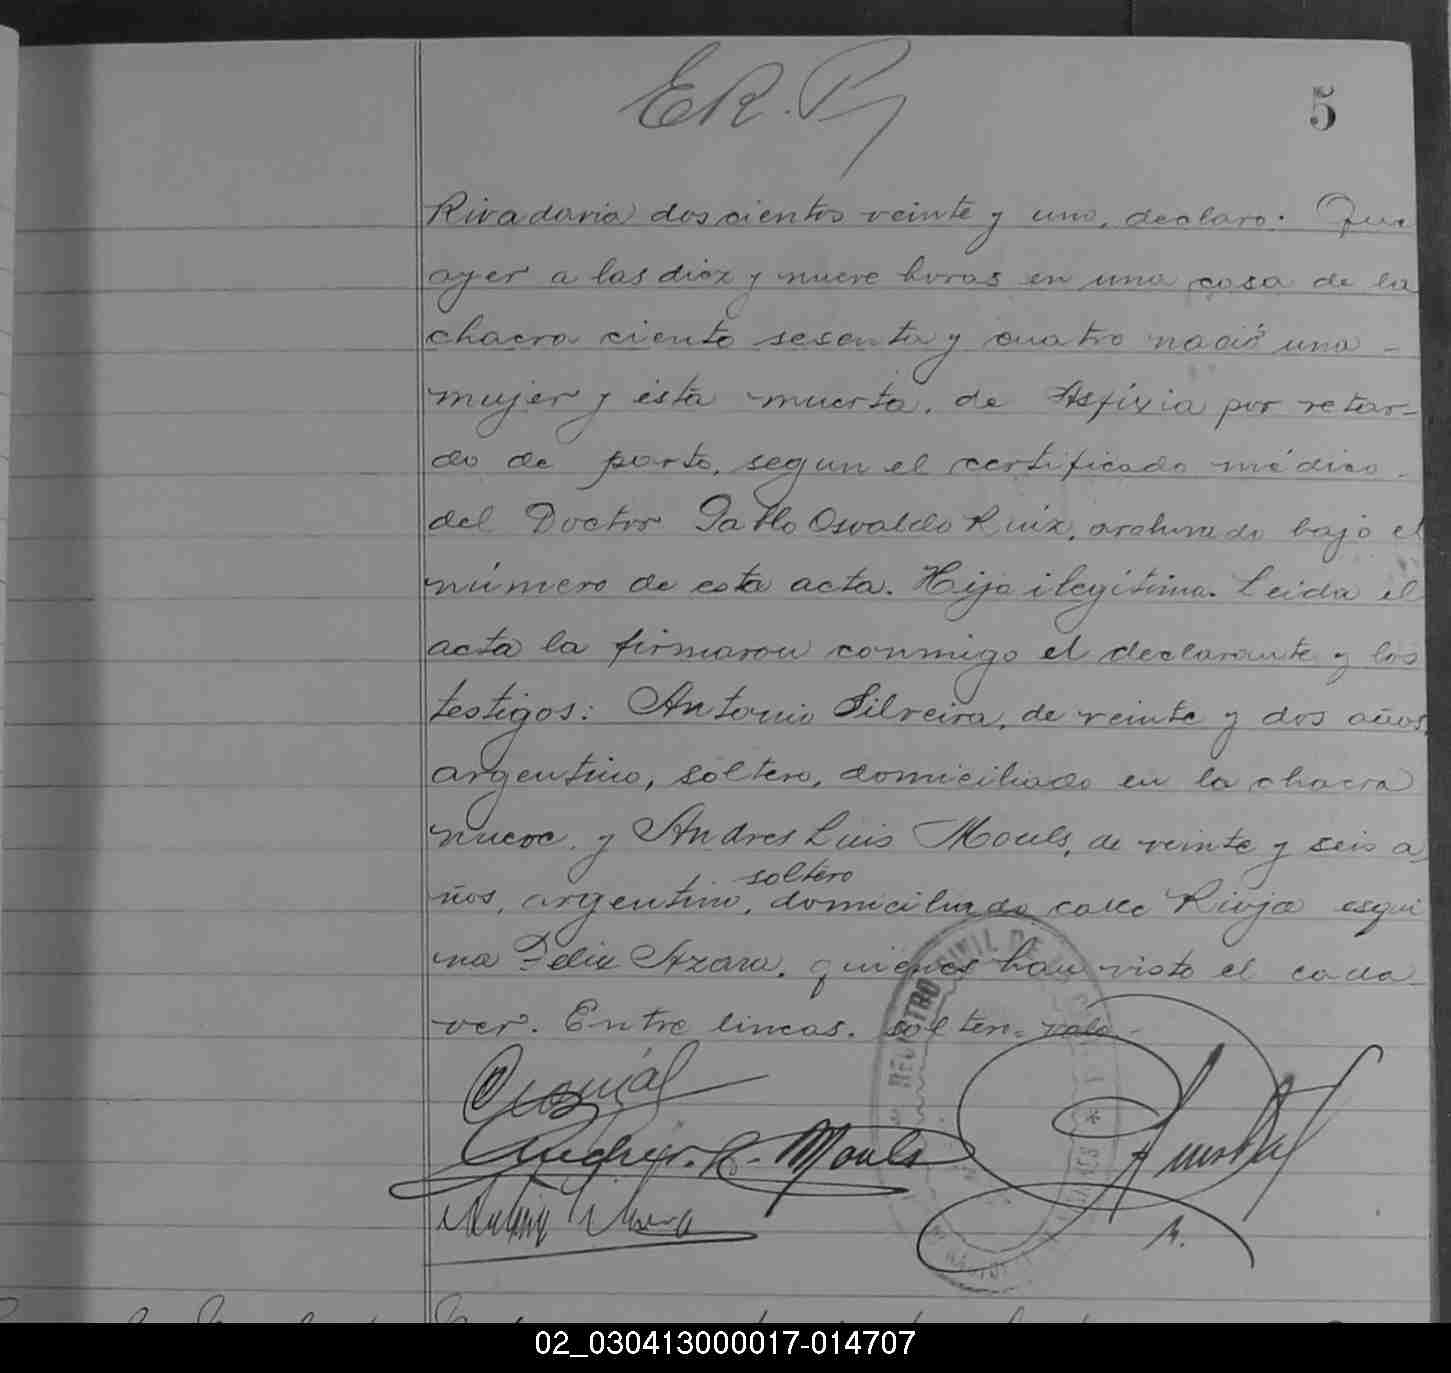 ER. P
5
Rivadavia doscientos veinte y uno, declaro: Que
ayer a las diez y nueve horas en una casa de la
chacra ciento sesenta y cuatro nació una -
mujer y ésta muerta, de Asfixia por retar-
do de parto, segun el certificado médico
del Doctor Pablo Osvaldo Ruiz, archivado bajo el
número de esta acta. Hija ilegitima. Leida el
acta la firmaron conmigo el declarante y los
testigos: Antonio Silveira, de veinte y dos años,
argentino, soltero, domiciliado en la chacra
nueve, y Andres Luis Mouls, de veinte y seis a
soltero
ños, argentino, domiciliado calle Rioja esqui
na Felix Azara, quienes han visto el cada-
ver. Entre lineas. soltero=vale-
Mouls
REGISTRO CIVIL DE
02_030413000017-014707